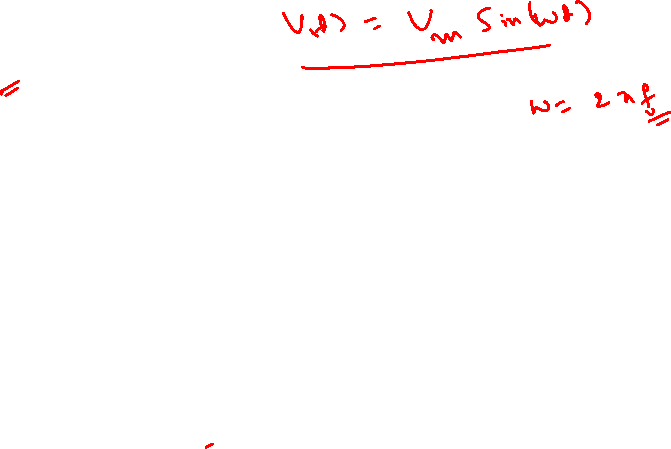 V(t) = Vm Sin(ωt)
ω = 2πf